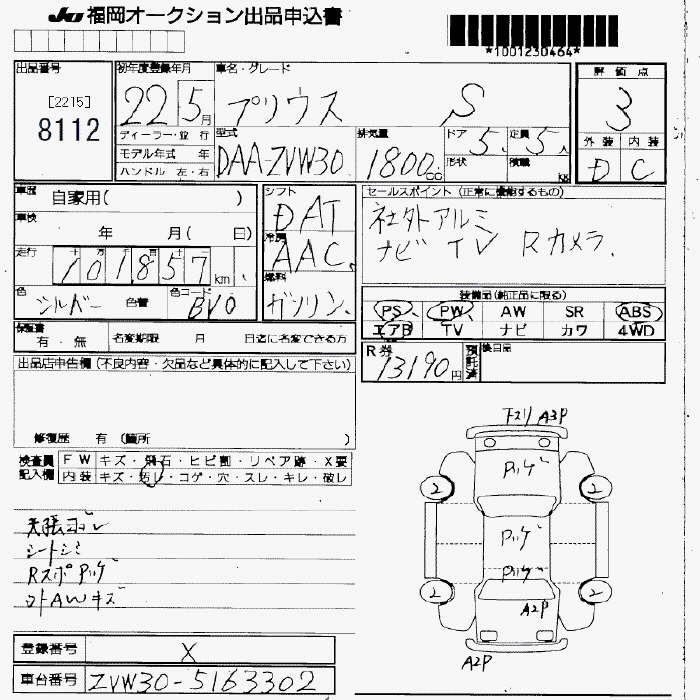 JU 福岡オークション出品申込書
*1001230464*
出品番号
[2215]
8112
初年度登録年月
22 5月
車名・グレード
プリウス S
評価点
3
外装 内装
D C
ディーラー・並行
モデル年式 年
ハンドル 左・右
型式
DAA-ZVW30
排気量
1800cc
ドア 5
定員 5人
形状
積載 kg
車歴 自家用( )
車検 年 月( 日)
走行 十万 千百十
101857km
色 シルバー 色替
色コード BVO
シフト
DAT
冷房
AAC
燃料
ガソリン
セールスポイント (正常に機能するもの)
社外アルミ
ナビ TV Rカメラ
装備品(純正品に限る)
PS PW AW SR ABS
エアB TV ナビ カワ 4WD
保証書 有・無
名変期限 月 日迄に名変できる方
R券 13190円
預託済
後日品
出品店申告欄(不良内容・欠品など具体的に記入して下さい)
修復歴 有 (箇所 )
検査員記入欄
FW キズ・飛石・ヒビ割・リペア跡・X要
内装 キズ・汚レ・コゲ・穴・スレ・キレ・破レ
天張ヨゴレ
シートシミ
Rスポ Pハゲ
ソトAWキズ
下スリ A3P
Pハゲ
2 2
Pハゲ
Pハゲ
2 2
A2P
A2P
登録番号 X
車台番号 ZVW30-5163302